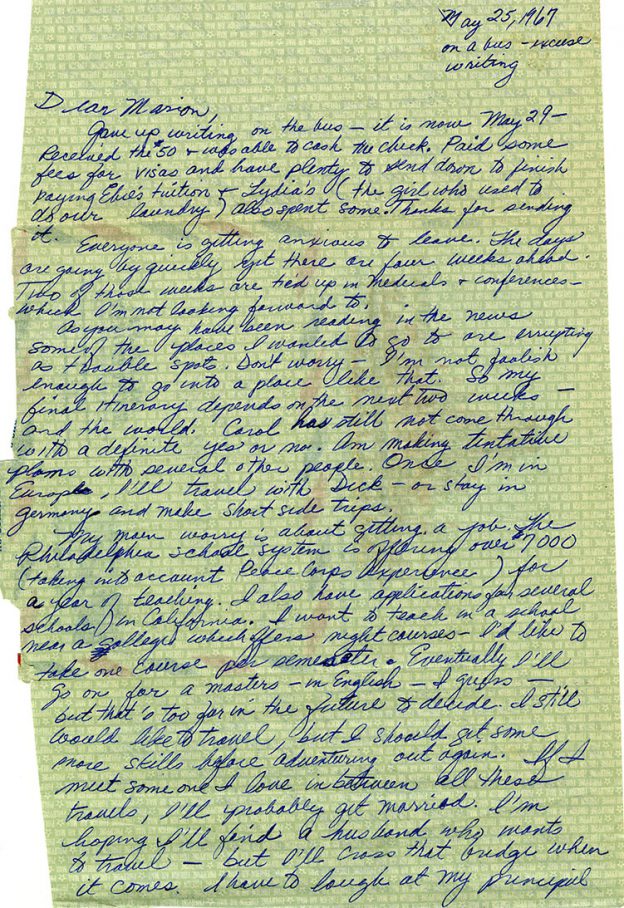 May 25, 1967
on a bus - excuse
writing
Dear Marion,
Gave up writing on the bus — it is now May 29 —
Received the $50 + was able to cash the check. Paid some
fees for visas and have plenty to send down to finish
paying Ebie's tuition + Lydia's (the girl who used to
do our laundry) also spent some. Thanks for sending
it.
Everyone is getting anxious to leave. The days
are going by quickly but there are four weeks ahead.
Two of those weeks are tied up in medicals + conferences —
which I'm not looking forward to.
As you may have been reading in the news
some of the places I wanted to go to are errupting
as trouble spots. Don't worry — I'm not foolish
enough to go into a place like that. So my
final itinerary depends on the next two weeks —
and the world. Carol has still not come through
with a definite yes or no. Am making tentative
plans with several other people. Once I'm in
Europe, I'll travel with Dick — or stay in
Germany and make short side trips.
My main worry is about getting a job. The
Philadelphia school system is offering over $7000
(taking into account Peace Corps experience) for
a year of teaching. I also have applications for several
schools in California. I want to teach in a school
near a college which offers night courses — I'd like to
take one course per semester. Eventually I'll
go on for a masters — in English — I guess —
but that's too far in the future to decide. I still
would like to travel, but I should get some
more skills before adventuring out again. If I
meet some one I love in between all these
travels, I'll probably get married. I'm
hoping I'll find a husband who wants
to travel — but I'll cross that bridge when
it comes. I have to laugh at my principal